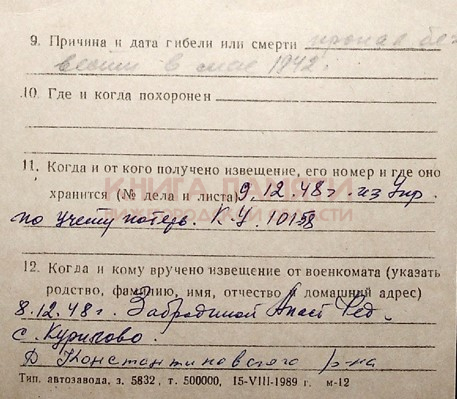 9. Причина и дата гибели или смерти пропал без
вести в мае 1942г.
10. Где и когда похоронен
11. Когда и от кого получено извещение, его номер и где оно
хранится (№ дела и листа) 9.12.48г. из Упр.
КНИГА ПАМЯТИ
по учету потерь. К.У. 10158
12. Когда и кому вручено извещение от военкомата (указать
родство, фамилию, имя, отчество и домашний адрес)
8.12.48г. Забродиной Анаст Фед.
с.
Д Константиновского р-на
Тип. автозавода, з. 5832, т. 500000, 15-VIII-1989 г. м-12